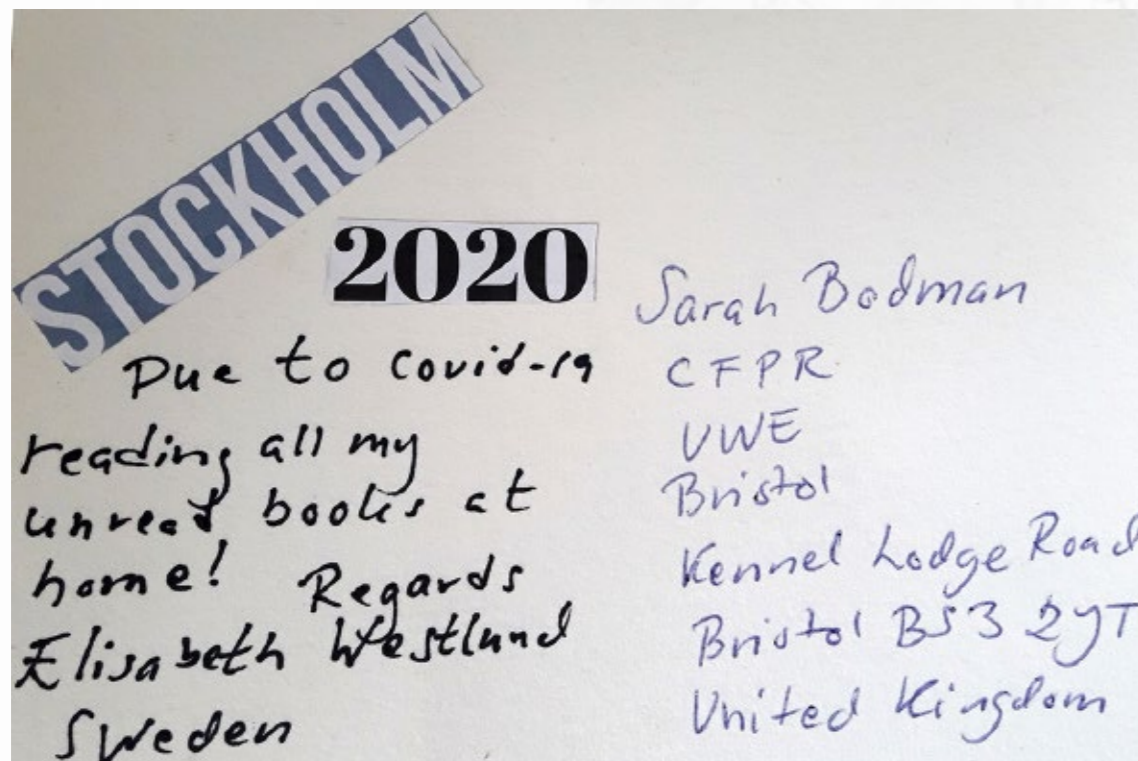 STOCKHOLM
2020
Due to covid-19
reading all my
unread books at
home! Regards
Elisabeth Westlund
Sweden
Sarah Bodman
CFPR
UWE
Bristol
Kennel Lodge Road
Bristol BS3 2JT
United Kingdom